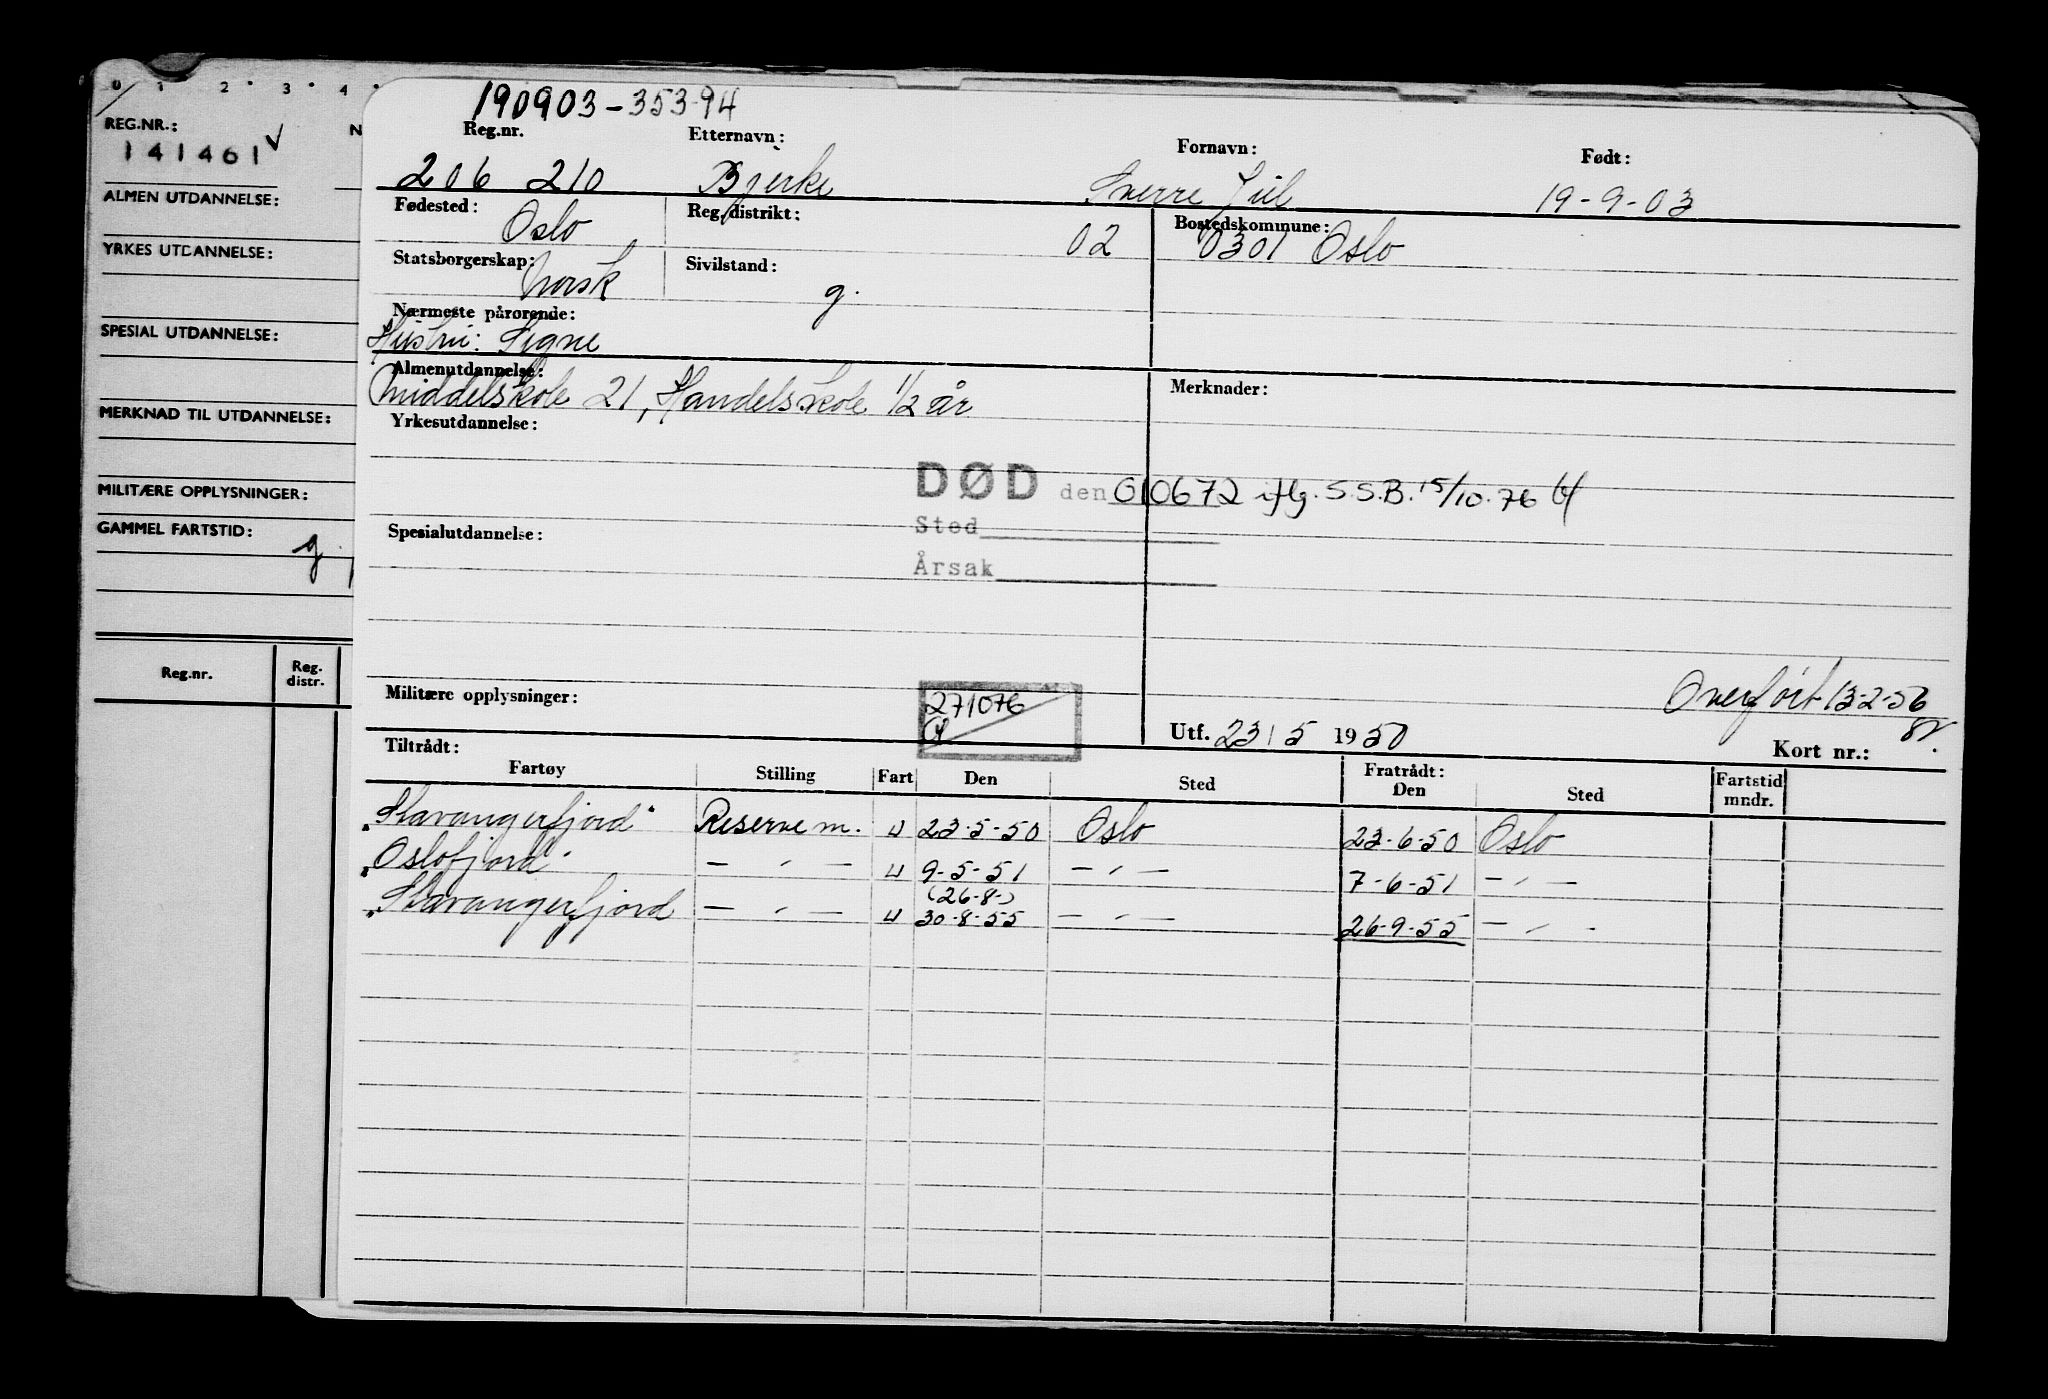 0 1 2 3 4
REG.NR.:
141461 V
ALMEN UTDANNELSE:
YRKES UTDANNELSE:
SPESIAL UTDANNELSE:
MERKNAD TIL UTDANNELSE:
MILITÆRE OPPLYSNINGER:
GAMMEL FARTSTID:
g.
Reg.nr. Reg. distr.
190903-353-94
Reg.nr. Etternavn: Fornavn: Født:
206 210 Bjerke Sverre Juel 19-9-03
Fødested: Oslo Reg.distrikt: 02 Bostedskommune: 0301 Oslo
Statsborgerskap: norsk Sivilstand: g.
Nærmeste pårørende:
Hustru: Signe
Almenutdannelse: Merknader:
Middelskole 21, Handelskole 1/2 år
Yrkesutdannelse:
DØD den 010672 iflg. S.S.B. 15/10-76
Sted
Spesialutdannelse:
Årsak
Overført 13-2-56
Militære opplysninger: 271076
Utf. 23/5 1950 Kort nr.:
Tiltrådt: Fratrådt:
Fartøy Stilling Fart Den Sted Den Sted Fartstid mndr.
"Stavangerfjord" Reserve m. U 23-5-50 Oslo 23-6-50 Oslo
"Oslofjord" — " — U 9-5-51 — " — 7-6-51 — " —
(26-8-)
"Stavangerfjord — " — U 30-8-55 — " — 26-9-55 — " -